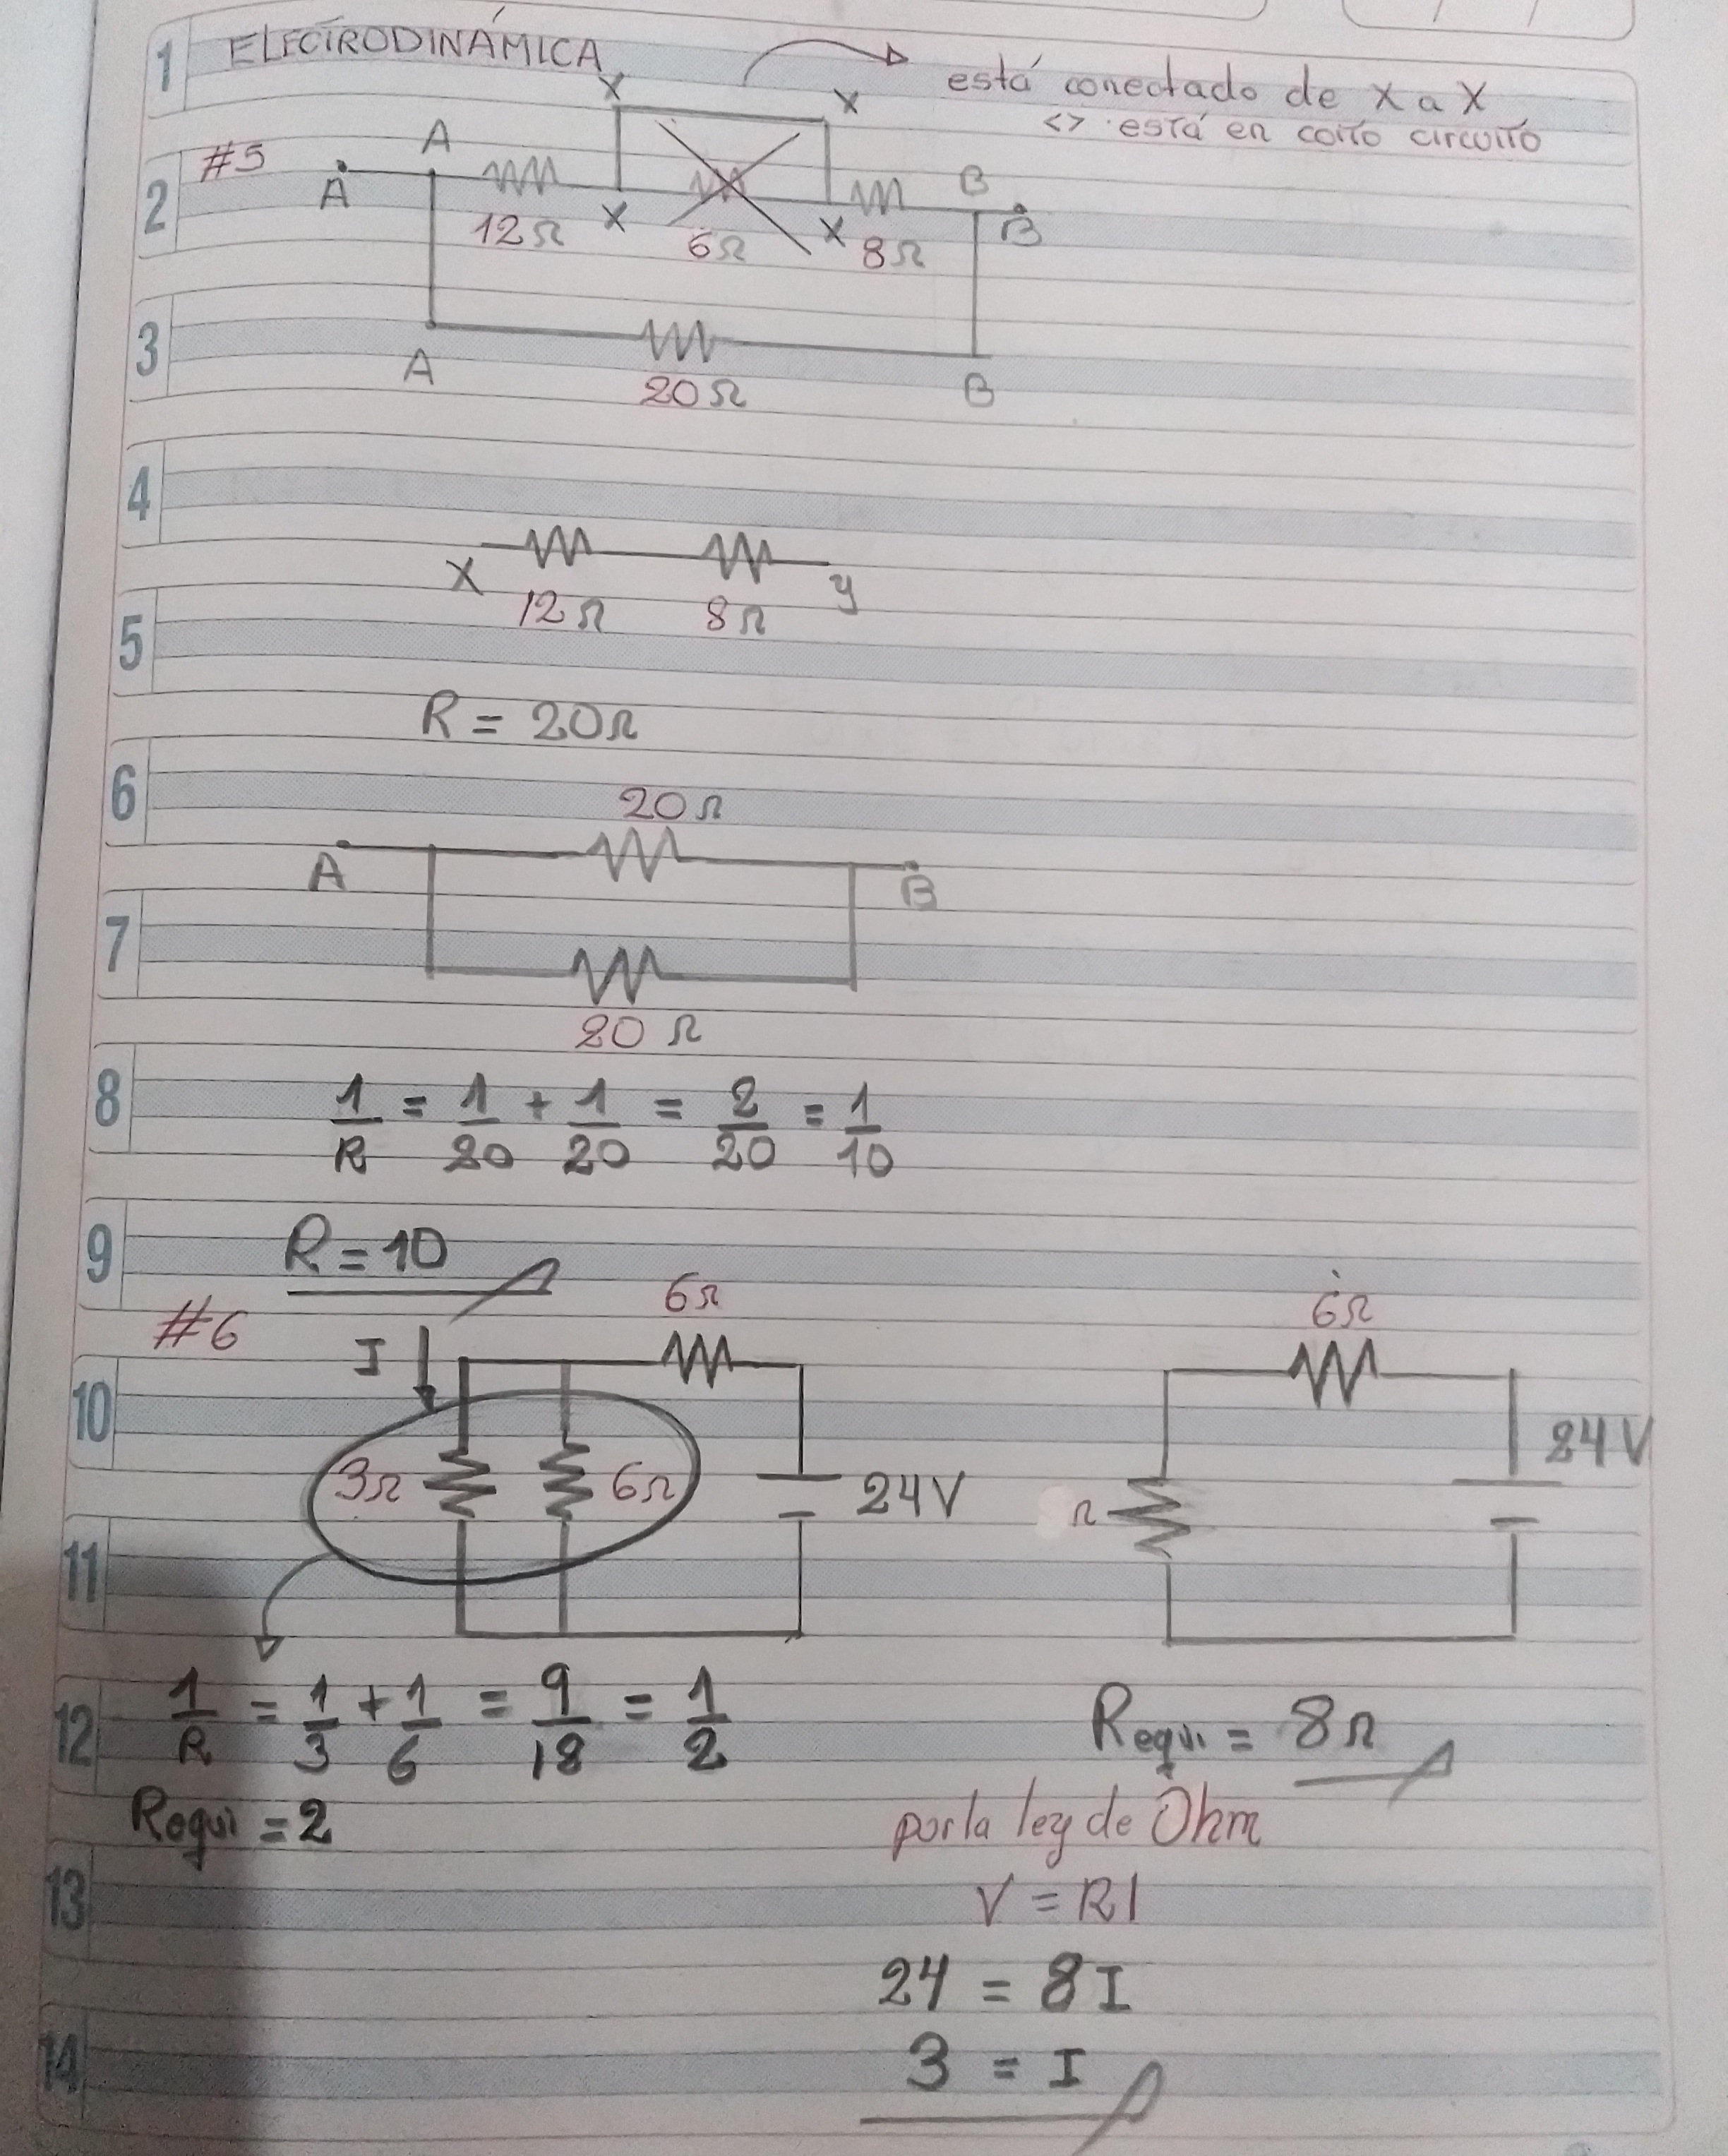 1 ELECTRODINÁMICA
está conectado de X a X
<> está en corto circuito
X X
#5
A
2 A B B
12Ω X 6Ω X 8Ω
3
A 20Ω B
4
X 12Ω 8Ω y
5
R = 20Ω
6
20Ω
A B
7
20 Ω
8 1/R = 1/20 + 1/20 = 2/20 = 1/10
9 R = 10
#6 I 6Ω 6Ω
10
3Ω 6Ω 24V Ω 24V
11
12 1/R = 1/3 + 1/6 = 9/18 = 1/2 Requi = 8Ω
Requi = 2 por la ley de Ohm
13 V = RI
24 = 8I
14 3 = I